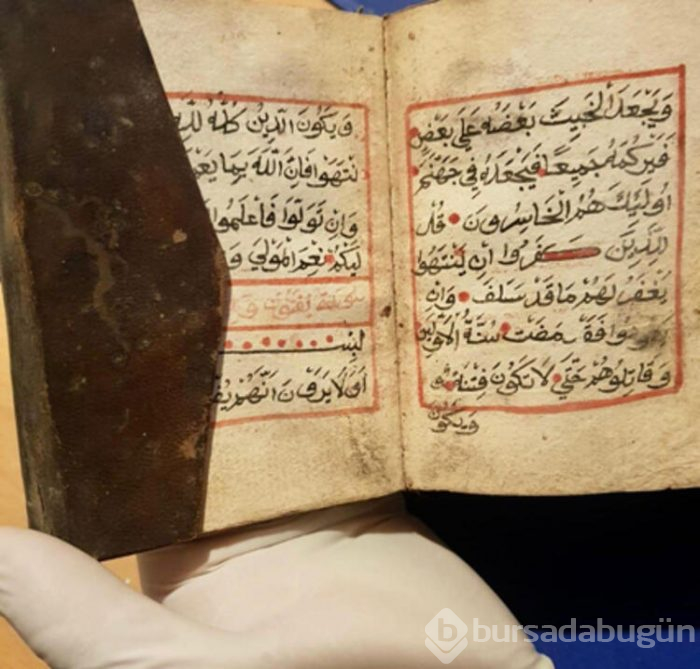 وَيَجْعَلَ الْخَبِيثَ بَعْضَهُ عَلَي بَعْضٍ
فَيَرْكُمَهُ جَمِيعًا فَيَجْعَلَهُ فِي جَهَنَّمَ
اُولَئِكَ هُمُ الْخَاسِرُونَ قُلْ
لِلَّذِينَ كَفَرُوا اَنْ يَنْتَهُوا
يُغْفَرْ لَهُمْ مَا قَدْ سَلَفَ وَاِنْ
فَقَدْ مَضَتْ سُنَّةُ الْاَوَّلِينَ
وَقَاتِلُوهُمْ حَتَّي لَا تَكُونَ فِتْنَةٌ و
وَيَكُونَ
وَيَكُونَ الدِّينُ كُلُّهُ لِلَّهِ
نْتَهَوْا فَاِنَّ اللَّهَ بِمَا
وَاِنْ تَوَلَّوْا فَاعْلَمُوا
نِعْمَ الْمَوْلَي
سورة
اَوَلَا يَرَوْنَ اَنَّهُمْ
bursadabugün